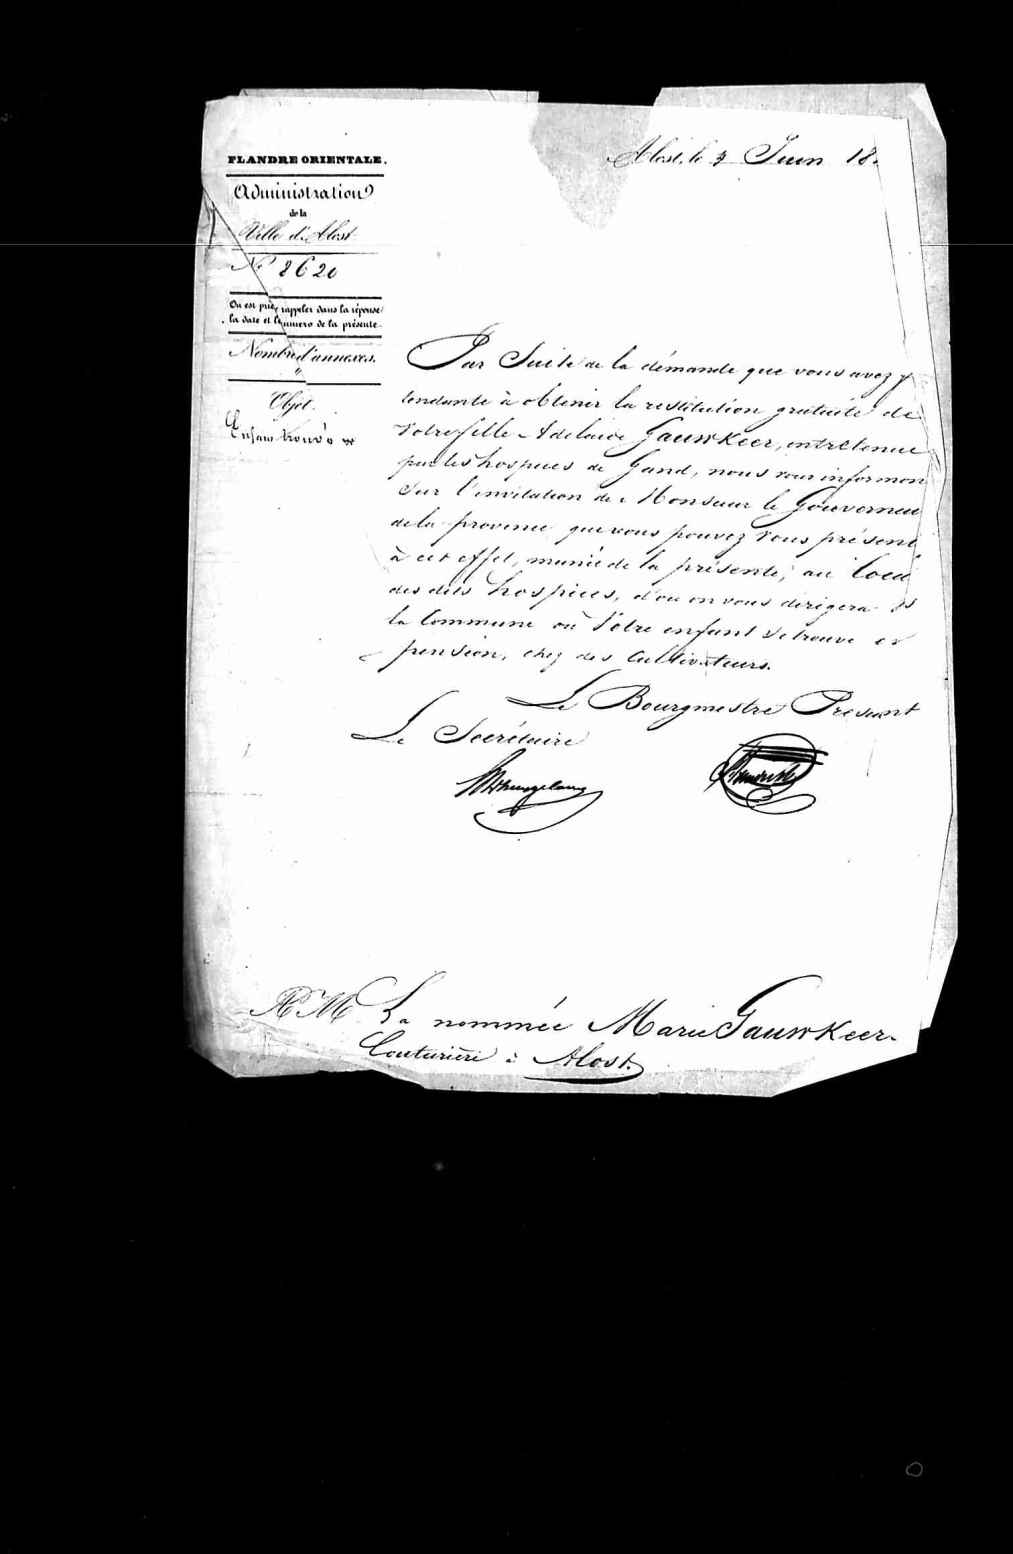 FLANDRE ORIENTALE.
Administration
de la
Ville d'Alost
N° 2620
On est prié rappeler dans la réponse
la date et le numéro de la présente.
Nombre d'annexes.
"
Objet.
Enfant trouvé
Alost, le 3 Juin 18
Par Suite de la démande que vous avez
tendante à obtenir la restitution gratuite de
Votre fille Adelaïde Gauwkeer, entretenue
par les hospices de Gand, nous vous informon
Sur l'invitation de Monsieur le Gouverneu
de la province que vous pouvez Vous présent
à cet effet, munie de la présente, au
des dits hospices, d'où on vous dirigera
la Commune où Votre enfant se trouve en
pension, chez des Cultivateurs.
Le Bourgmestre Président
Le Secrétaire
A M La nommée Marie Gauwkeer.
Couturière à Alost.